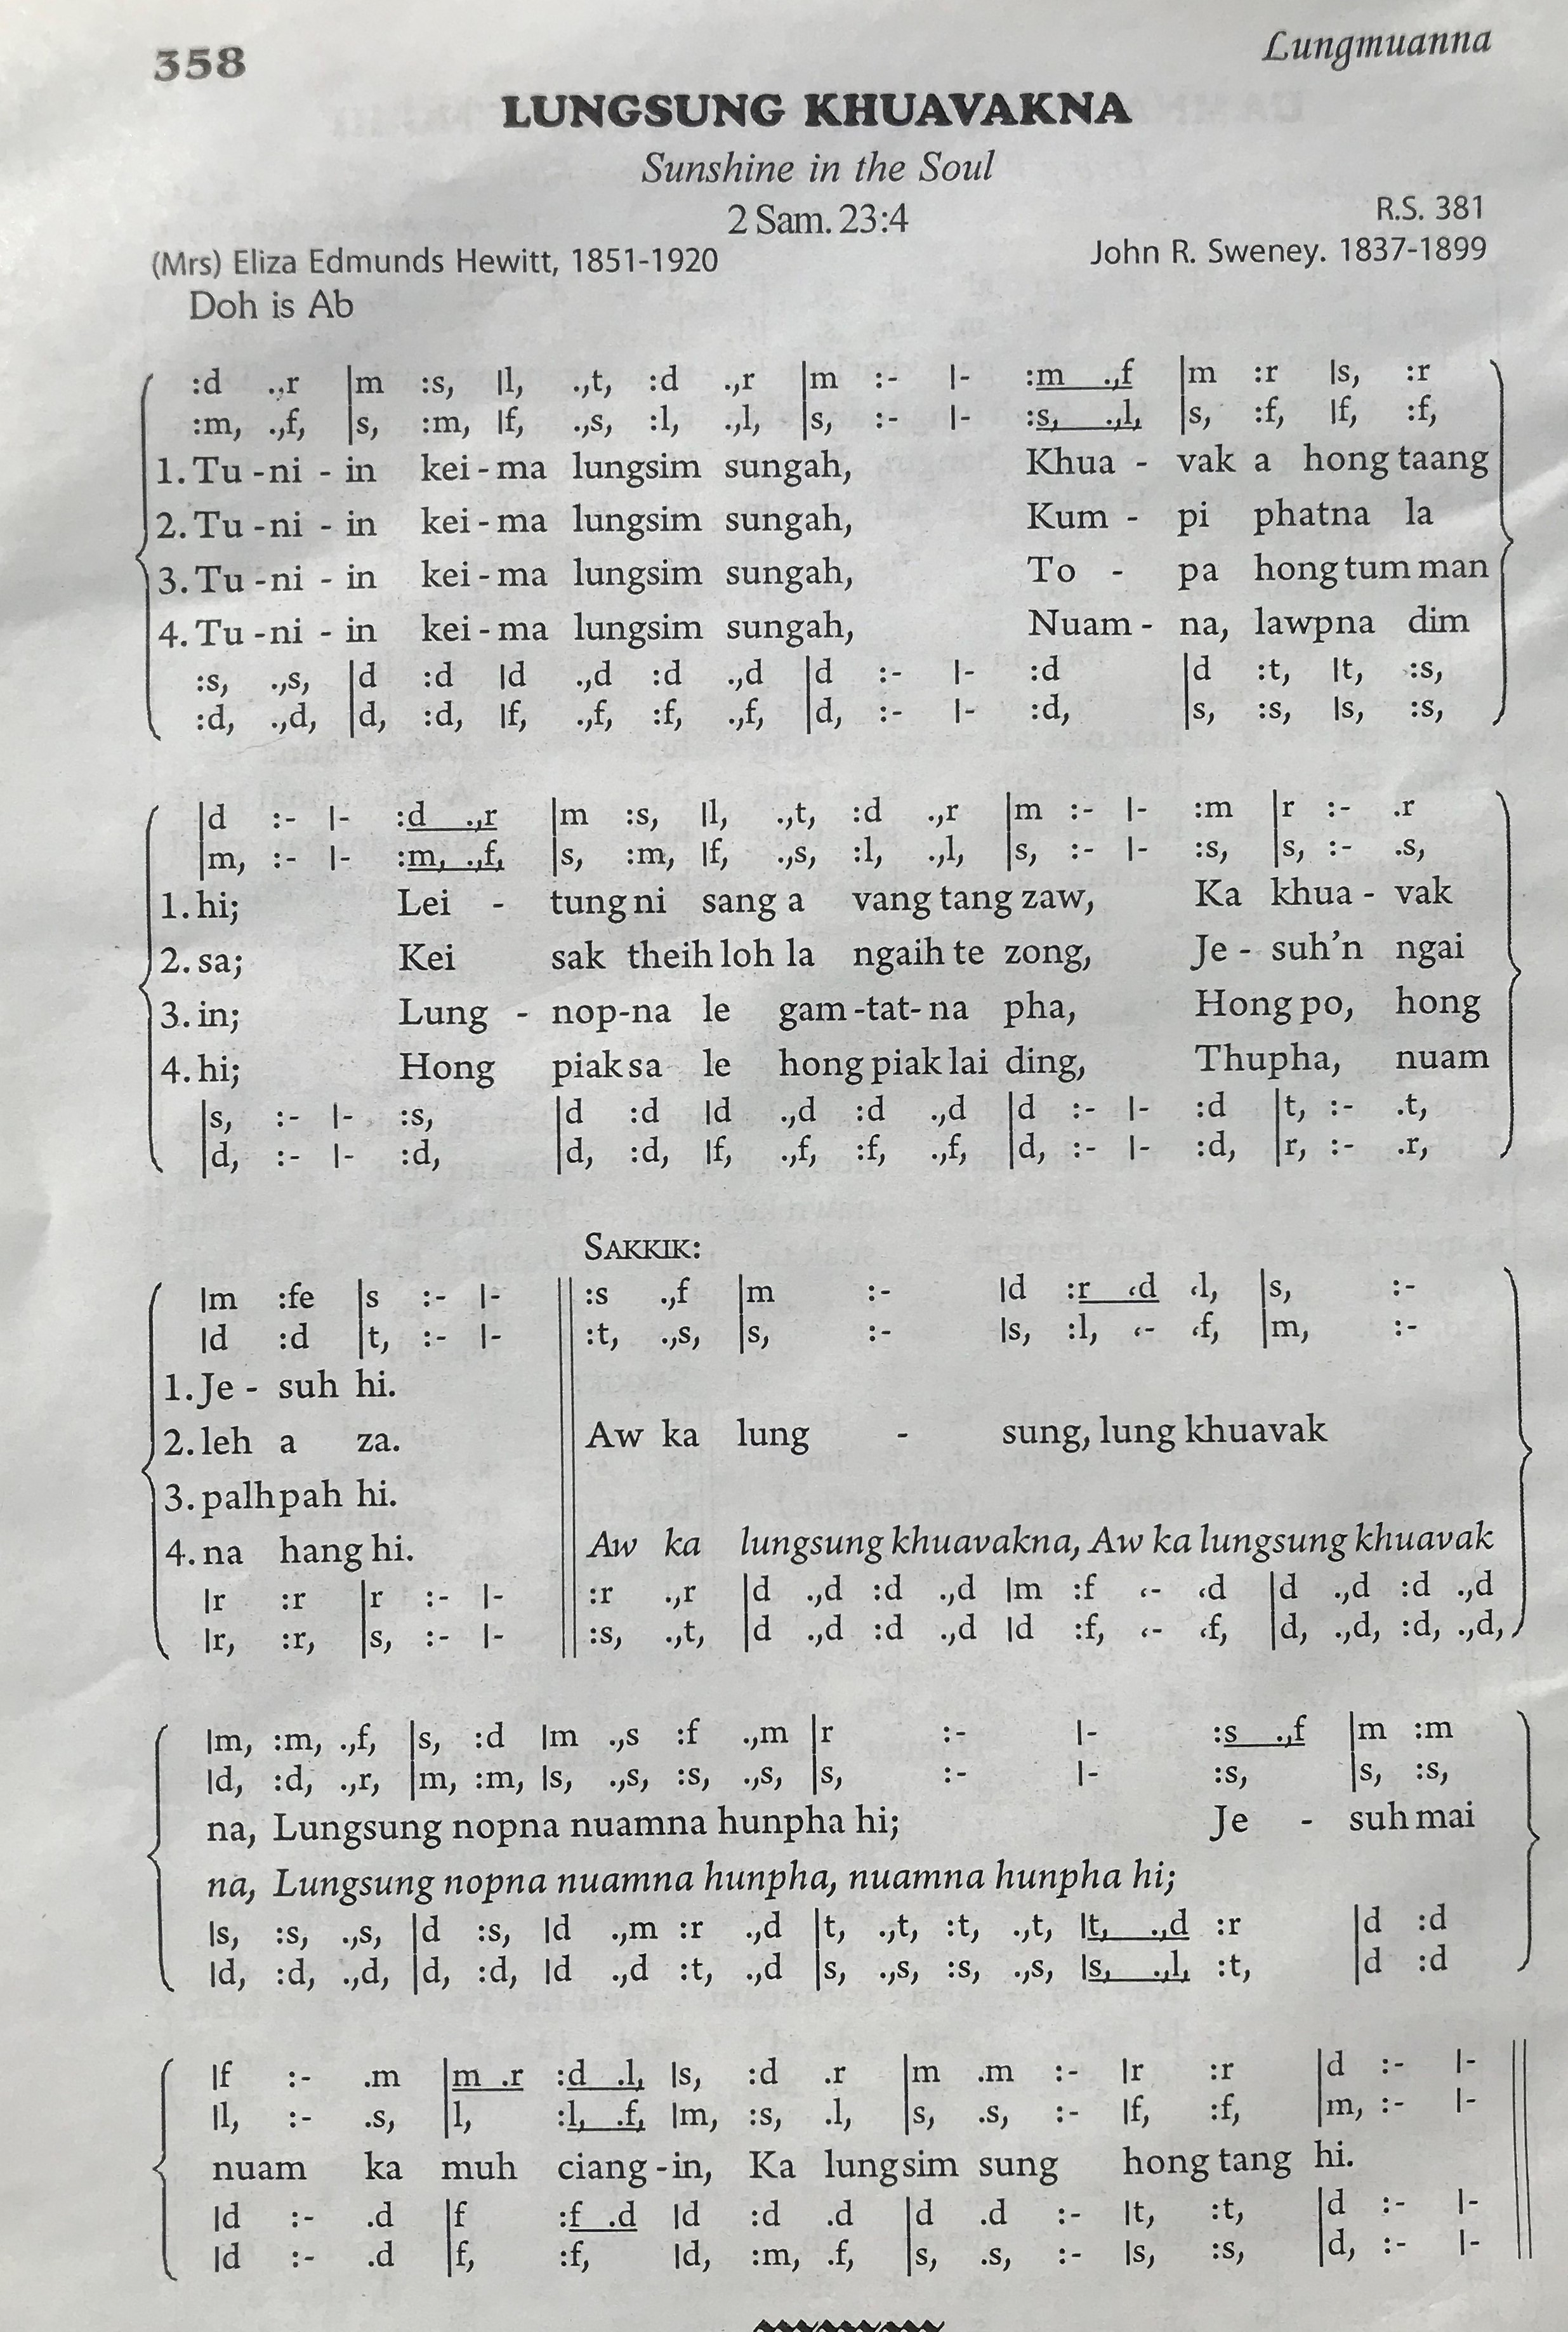 358
Lungmuanna
LUNGSUNG KHUAVAKNA
Sunshine in the Soul
2 Sam. 23:4
R.S. 381
(Mrs) Eliza Edmunds Hewitt, 1851-1920
John R. Sweney. 1837-1899
Doh is Ab
:d .,r |m :s, |l, .,t, :d .,r |m :- |- :m .,f |m :r |s, :r
:m, .,f, |s, :m, |f, .,s, :l, .,l, |s, :- |- :s, .,l, |s, :f, |f, :f,
1. Tu - ni - in kei - ma lungsim sungah, Khua - vak a hong taang
2. Tu - ni - in kei - ma lungsim sungah, Kum - pi phatna la
3. Tu - ni - in kei - ma lungsim sungah, To - pa hong tum man
4. Tu - ni - in kei - ma lungsim sungah, Nuam - na, lawpna dim
:s, .,s, |d :d |d .,d :d .,d |d :- |- :d |d :t, |t, :s,
:d, .,d, |d, :d, |f, .,f, :f, .,f, |d, :- |- :d, |s, :s, |s, :s,
|d :- |- :d .,r |m :s, |l, .,t, :d .,r |m :- |- :m |r :- .r
|m, :- |- :m, .,f, |s, :m, |f, .,s, :l, .,l, |s, :- |- :s, |s, :- .s,
1. hi; Lei - tung ni sang a vang tang zaw, Ka khua - vak
2. sa; Kei sak theih loh la ngaih te zong, Je - suh'n ngai
3. in; Lung - nop-na le gam-tat-na pha, Hong po, hong
4. hi; Hong piak sa le hong piak lai ding, Thupha, nuam
|s, :- |- :s, |d :d |d .,d :d .,d |d :- |- :d |t, :- .t,
|d, :- |- :d, |d, :d, |f, .,f, :f, .,f, |d, :- |- :d, |r, :- .r,
SAKKIK:
|m :fe |s :- |- :s .,f |m :- |d :r ‹d ‹l, |s, :-
|d :d |t, :- |- :t, .,s, |s, :- |s, :l, ‹- ‹f, |m, :-
1. Je - suh hi.
2. leh a za. Aw ka lung - sung, lung khuavak
3. palhpah hi.
4. na hang hi. Aw ka lungsung khuavakna, Aw ka lungsung khuavak
|r :r |r :- |- :r .,r |d .,d :d .,d |m :f ‹- ‹d |d .,d :d .,d
|r, :r, |s, :- |- :s, .,t, |d .,d :d .,d |d :f, ‹- ‹f, |d, .,d, :d, .,d,
|m, :m, .,f, |s, :d |m .,s :f .,m |r :- |- :s .,f |m :m
|d, :d, .,r, |m, :m, |s, .,s, :s, .,s, |s, :- |- :s, |s, :s,
na, Lungsung nopna nuamna hunpha hi; Je - suh mai
na, Lungsung nopna nuamna hunpha, nuamna hunpha hi;
|s, :s, .,s, |d :s, |d .,m :r .,d |t, .,t, :t, .,t, |t, .,d :r |d :d
|d, :d, .,d, |d, :d, |d .,d :t, .,d |s, .,s, :s, .,s, |s, .,l, :t, |d :d
|f :- .m |m .r :d .l, |s, :d .r |m .m :- |r :r |d :- |-
|l, :- .s, |l, :l, .f, |m, :s, .l, |s, .s, :- |f, :f, |m, :- |-
nuam ka muh ciang-in, Ka lungsim sung hong tang hi.
|d :- .d |f :f .d |d :d .d |d .d :- |t, :t, |d :- |-
|d :- .d |f, :f, |d, :m, .f, |s, .s, :- |s, :s, |d, :- |-